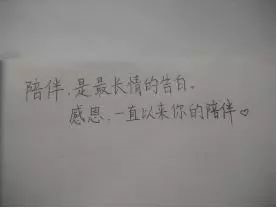 陪伴，是最长情的告白。
感恩，一直以来你的陪伴♡